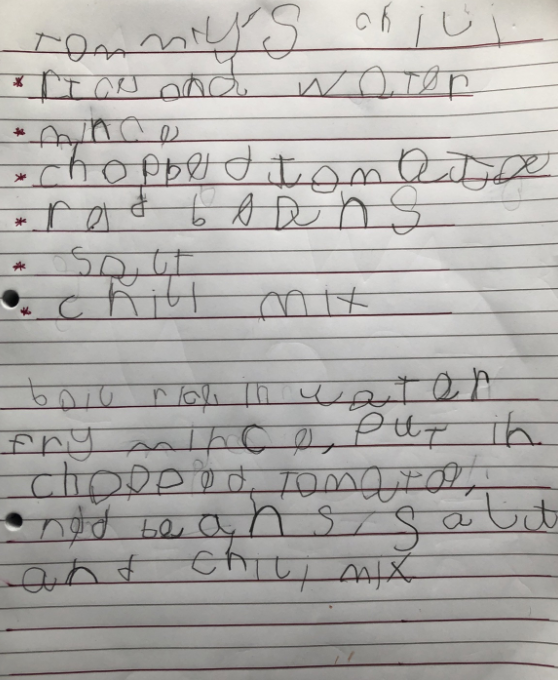 Tommy's chili
* rice and water
* mince
* chopped tomatoe
* red beans
* salt
* chili mix
boil rice in water
fry mince, put in
chopped tomatoe,
red beans, salt
and chili mix